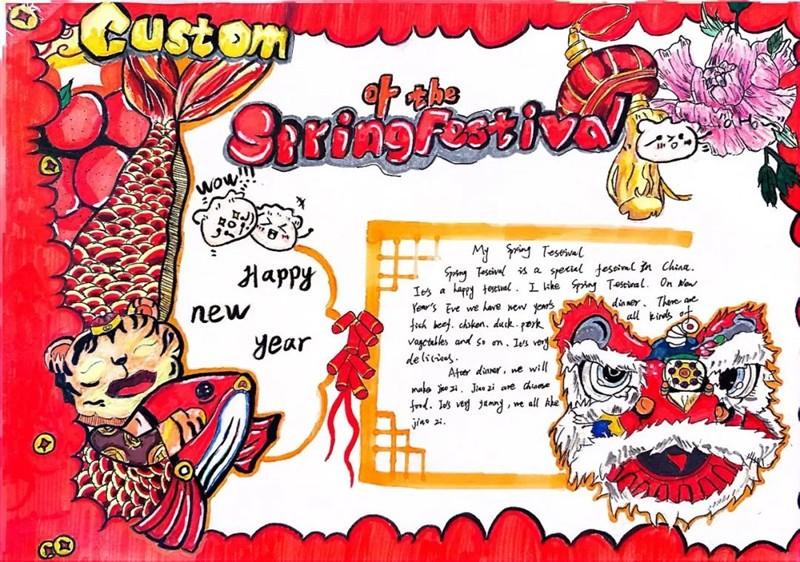 Custom
of the
Spring Festival
wow!!!
Happy
new
year
My Spring Festival
Spring Festival is a special festival in China.
It's a happy festival. I like Spring Festival. On New
Year's Eve we have new years dinner. There are
all kinds of
fish beef. chiken. duck. pork
vegetables and so on. It's very
delicious.
After dinner, we will
make jiao zi. Jiao zi are Chinese
food. It's very yummy, we all like
jiao zi.